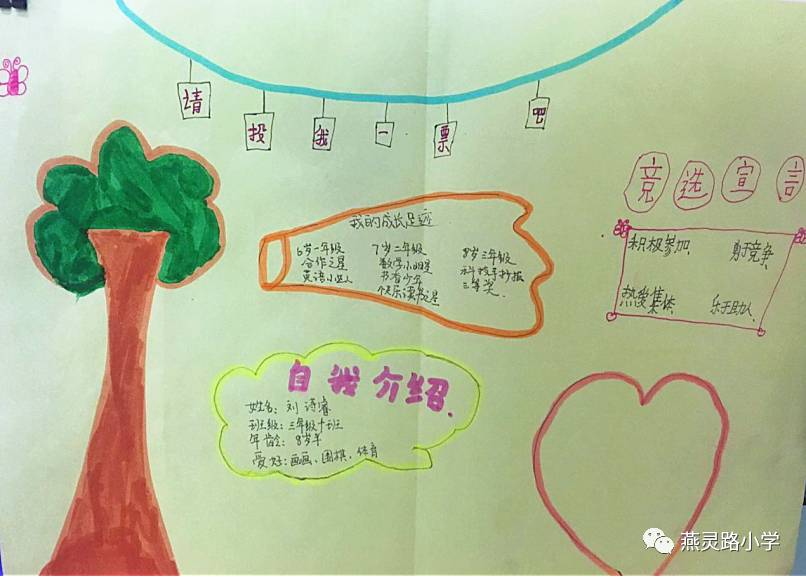 请投我一票吧
竞选宣言
积极参加
勇于竞争
热爱集体
乐于助人
我的成长足迹
6岁一年级
合作之星
英语小达人
7岁二年级
数学小明星
书香少年
快乐读书之星
8岁三年级
科技手抄报
三等奖
自我介绍
姓名：刘诗睿
班级：三年级十班
年龄：8岁半
爱好：画画、围棋、体育
燕灵路小学